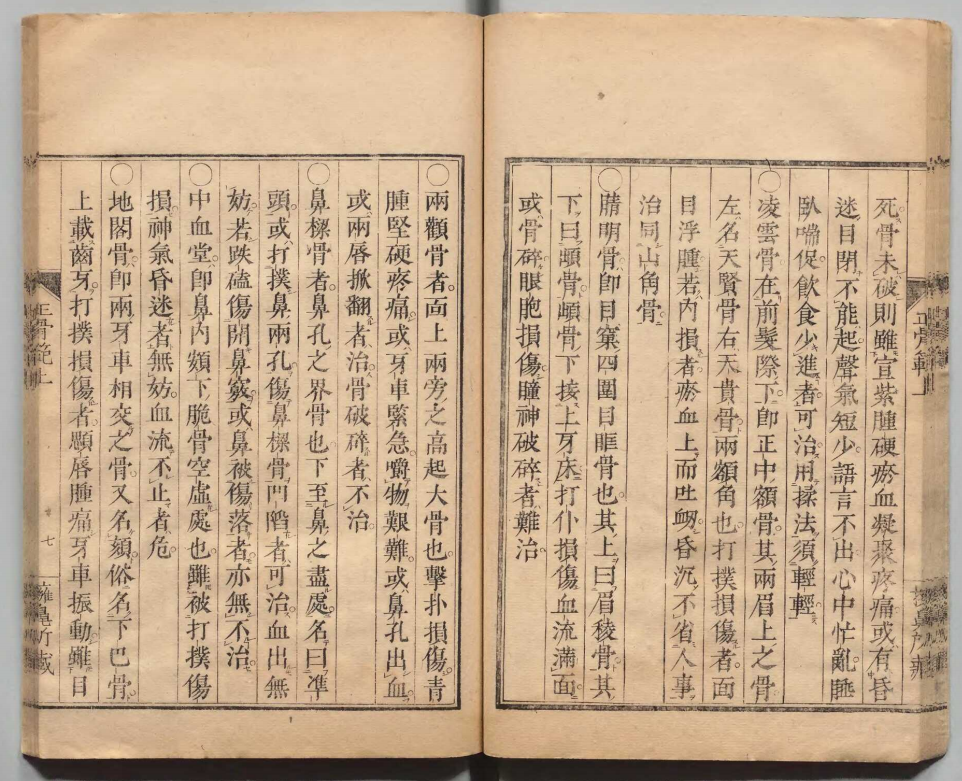 死骨未破則雖宣紫腫硬瘀血凝聚疼痛或有昏
迷目閉不能起聲氣短少語言不出心中忙亂睡
臥喘促飲食少進者可治用揉法須輕輕
○凌雲骨在前髮際下卽正中額骨其兩眉上之骨
左名天賢骨右天貴骨兩額角也打撲損傷者面
目浮腫若內損者瘀血上而吐衂昏沉不省人事
治同山角骨
○睛明骨卽目窠四圍目眶骨也其上曰眉稜骨其
下曰䪼骨䪼骨下接上牙床打仆損傷血流滿面
或骨碎眼胞損傷瞳神破碎者難治
○兩顴骨者面上兩旁之高起大骨也擊扑損傷青
腫堅硬疼痛或牙車緊急嚼物艱難或鼻孔出血
或兩唇掀翻者治骨破碎者不治
○鼻樑骨者鼻孔之界骨也下至鼻之盡處名曰準
頭或打撲鼻兩孔傷鼻樑骨凹陷者可治血出無
妨若跌磕傷開鼻竅或鼻被傷落者亦無不治
○中血堂卽鼻內頞下脆骨空虛處也雖被打撲傷
損神氣昏迷者無妨血流不止者危
○地閣骨卽兩牙車相交之骨又名頦俗名下巴骨
上載齒牙打撲損傷者顋唇腫痛牙車振動雖目
正骨範上
七